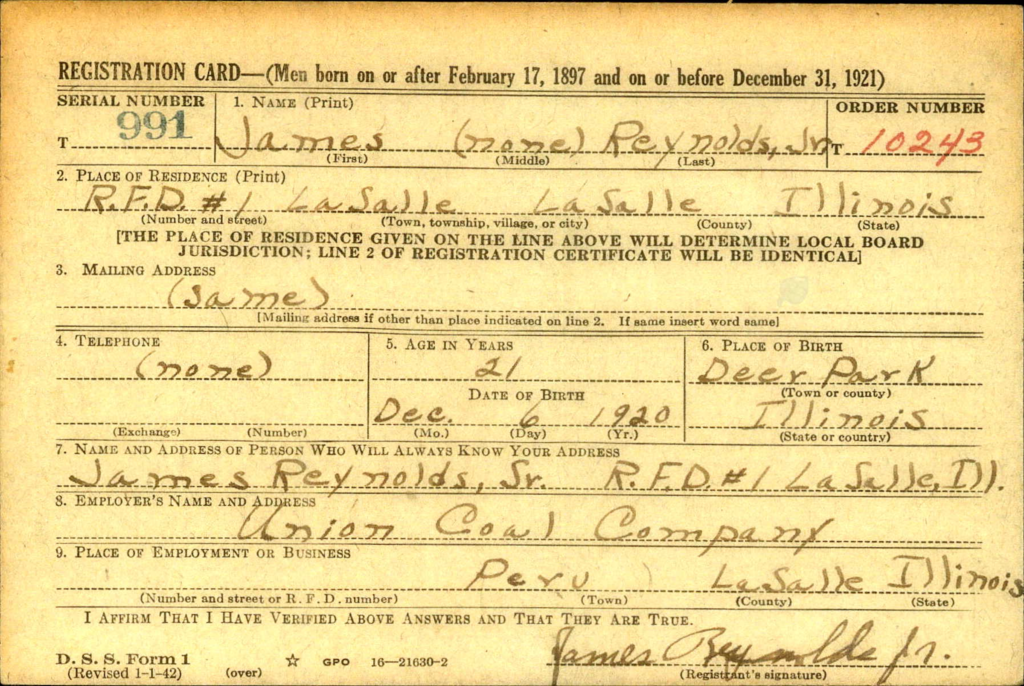 REGISTRATION CARD—(Men born on or after February 17, 1897 and on or before December 31, 1921)
SERIAL NUMBER 1. NAME (Print) ORDER NUMBER
T 991 James (none) Reynolds, Jr. T 10243
(First) (Middle) (Last)
2. PLACE OF RESIDENCE (Print)
R.F.D. #1 LaSalle LaSalle Illinois
(Number and street) (Town, township, village, or city) (County) (State)
[THE PLACE OF RESIDENCE GIVEN ON THE LINE ABOVE WILL DETERMINE LOCAL BOARD
JURISDICTION; LINE 2 OF REGISTRATION CERTIFICATE WILL BE IDENTICAL]
3. MAILING ADDRESS
(same)
[Mailing address if other than place indicated on line 2. If same insert word same]
4. TELEPHONE 5. AGE IN YEARS 6. PLACE OF BIRTH
(none) 21 Deer Park
DATE OF BIRTH (Town or county)
Dec. 6 1920 Illinois
(Exchange) (Number) (Mo.) (Day) (Yr.) (State or country)
7. NAME AND ADDRESS OF PERSON WHO WILL ALWAYS KNOW YOUR ADDRESS
James Reynolds, Sr. R.F.D. #1 LaSalle, Ill.
8. EMPLOYER'S NAME AND ADDRESS
Union Coal Company
9. PLACE OF EMPLOYMENT OR BUSINESS
Peru LaSalle Illinois
(Number and street or R. F. D. number) (Town) (County) (State)
I AFFIRM THAT I HAVE VERIFIED ABOVE ANSWERS AND THAT THEY ARE TRUE.
James Reynolds Jr.
D. S. S. Form 1 ☆ GPO 16—21630-2
(Revised 1-1-42) (over) (Registrant's signature)